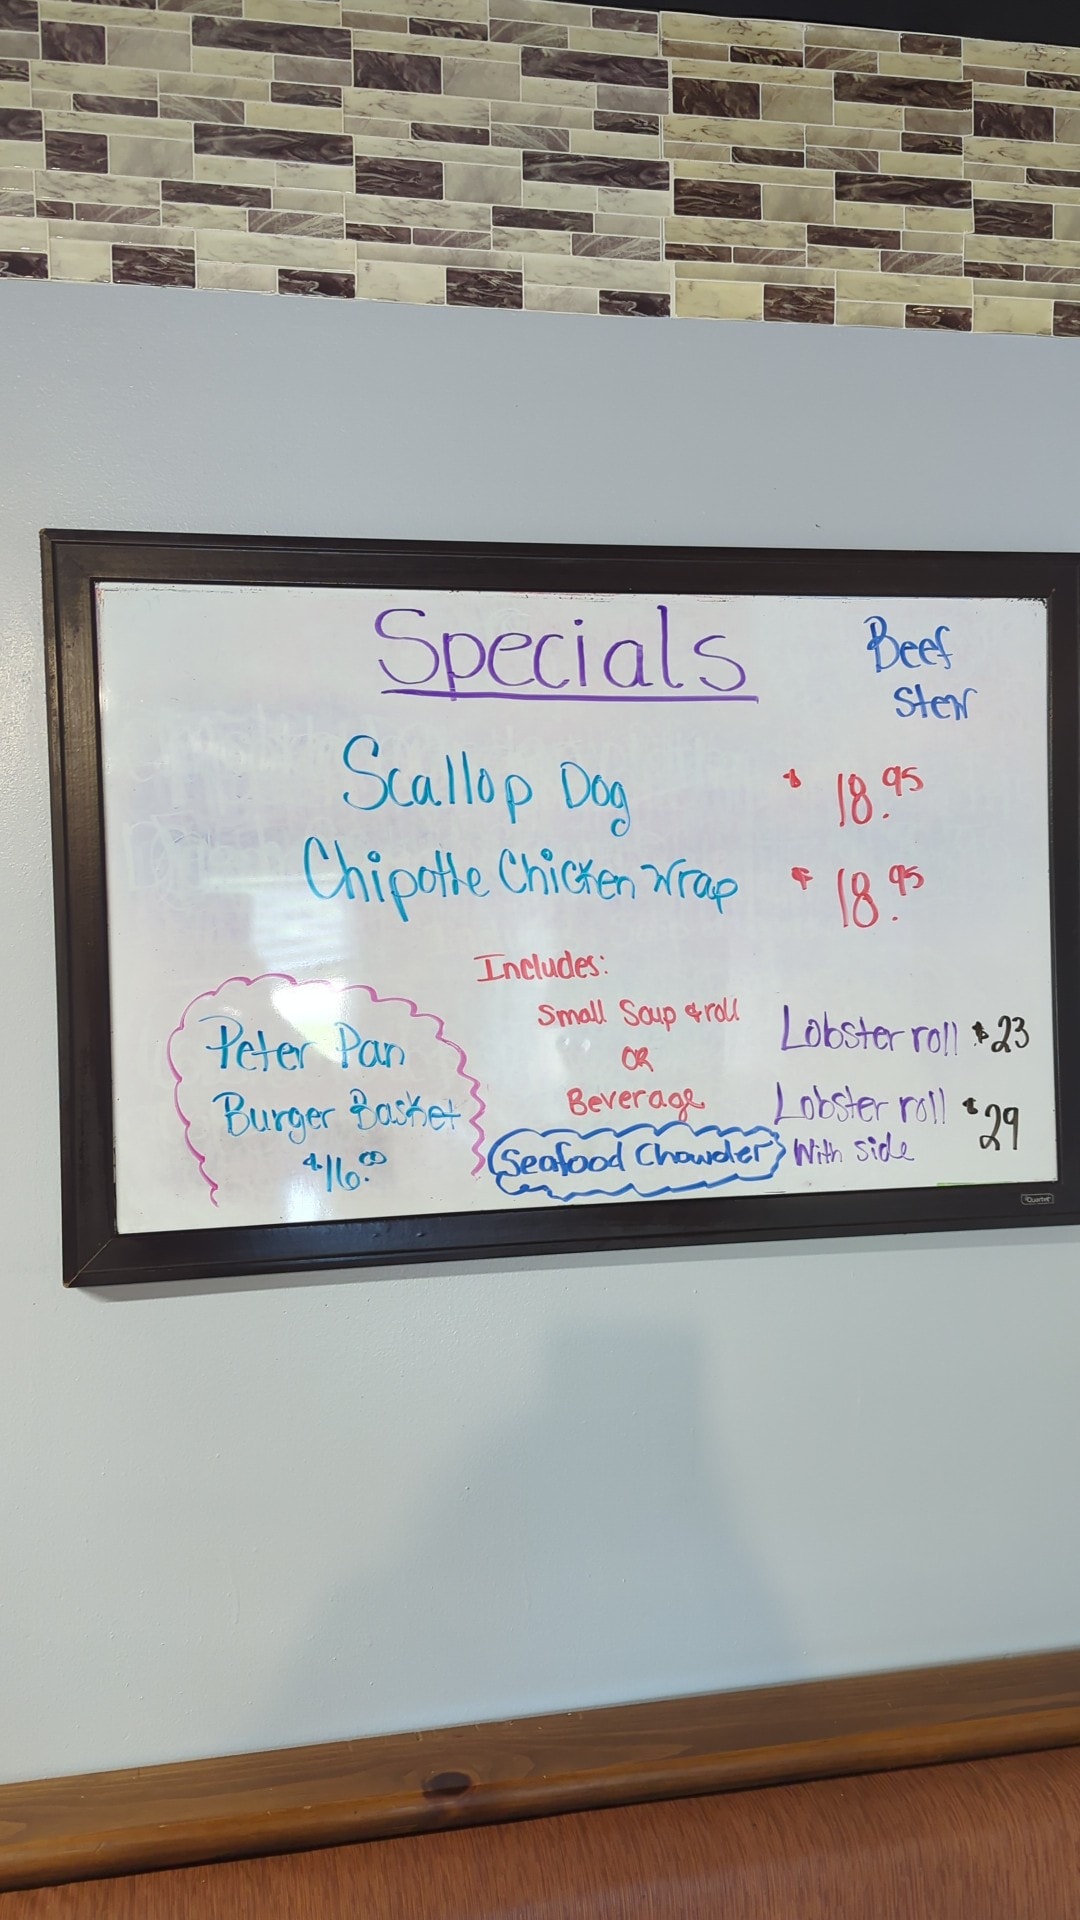 Specials
Beef
Stew
Scallop Dog $18.95
Chipotle Chicken Wrap $18.95
Includes:
Small Soup & roll
OR
Beverage
Peter Pan
Burger Basket
$16.00
Seafood Chowder
Lobster roll $23
Lobster roll $29
With side
Quartet